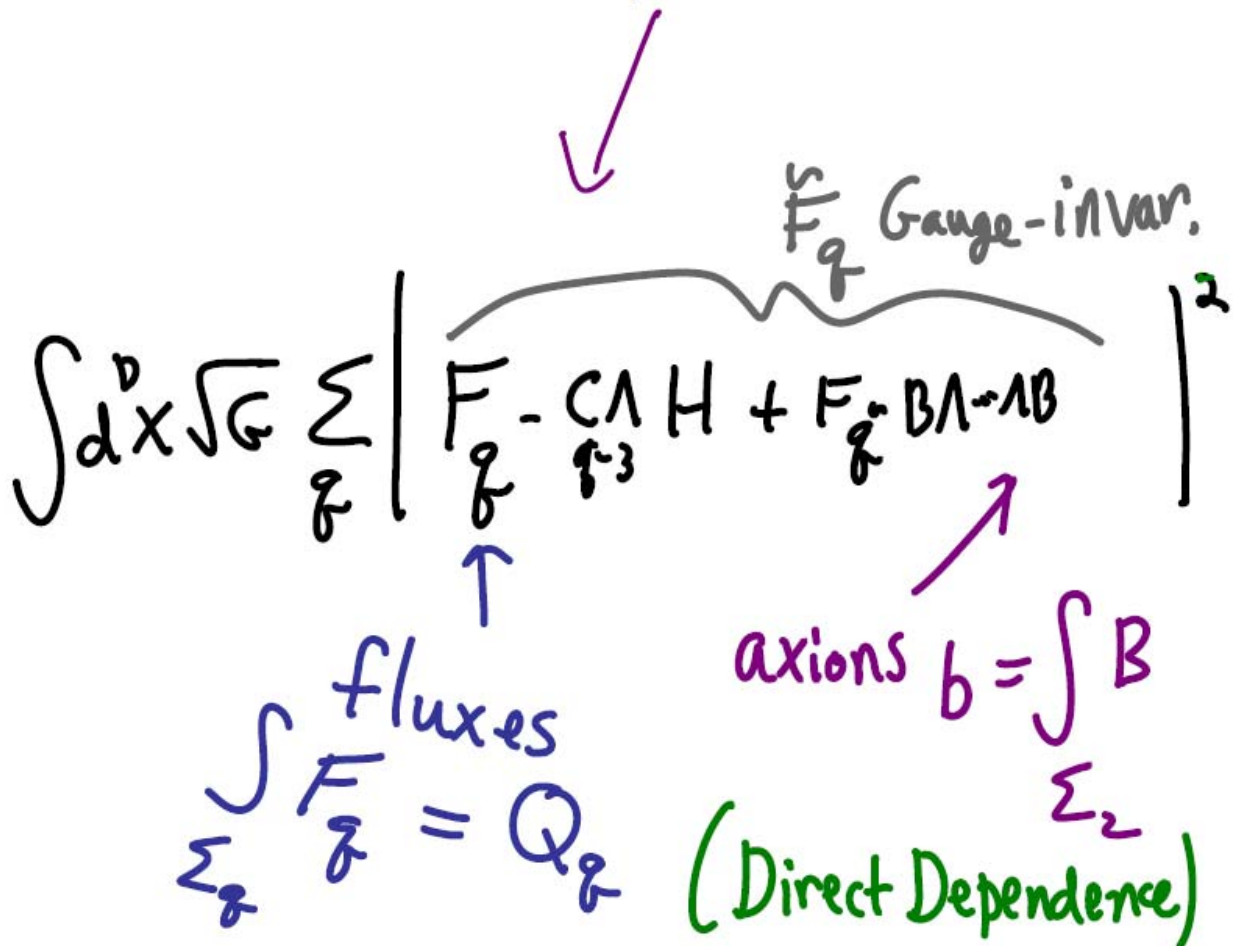 F̃_q Gauge-invar.
∫d^D x √G Σ_q | F_q - C_{q-3} ∧ H + F_q.. B∧--∧B |^2
fluxes
∫_{Σ_q} F_q = Q_q
axions b = ∫_{Σ_2} B
(Direct Dependence)